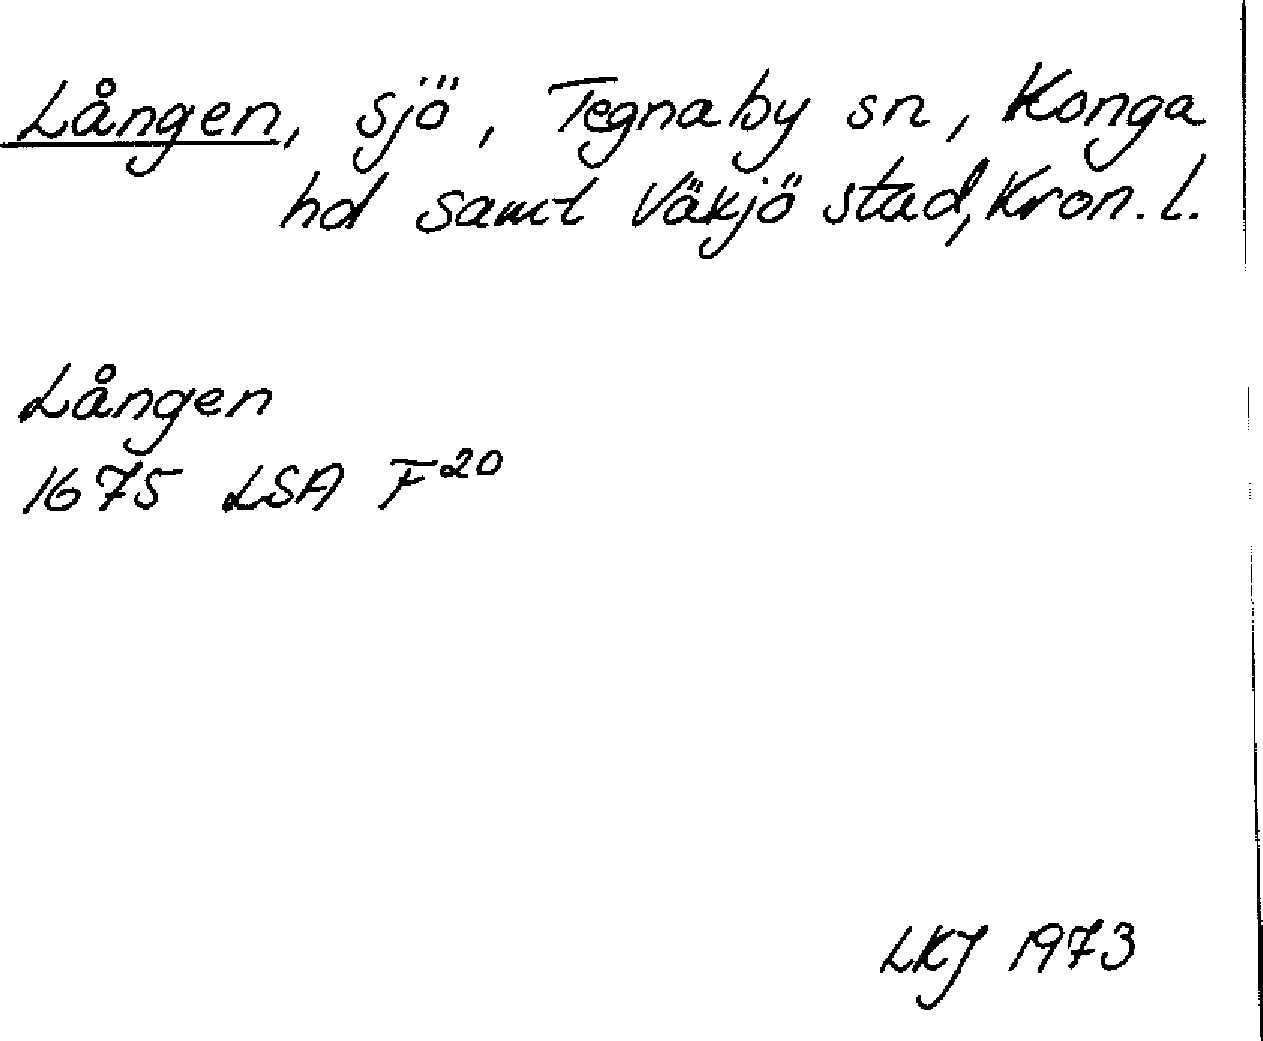 Lången, sjö, Tegnaby sn, Konga
hd samt Växjö stad, Kron. l.
Lången
1675 LSA F20
LKJ 1973